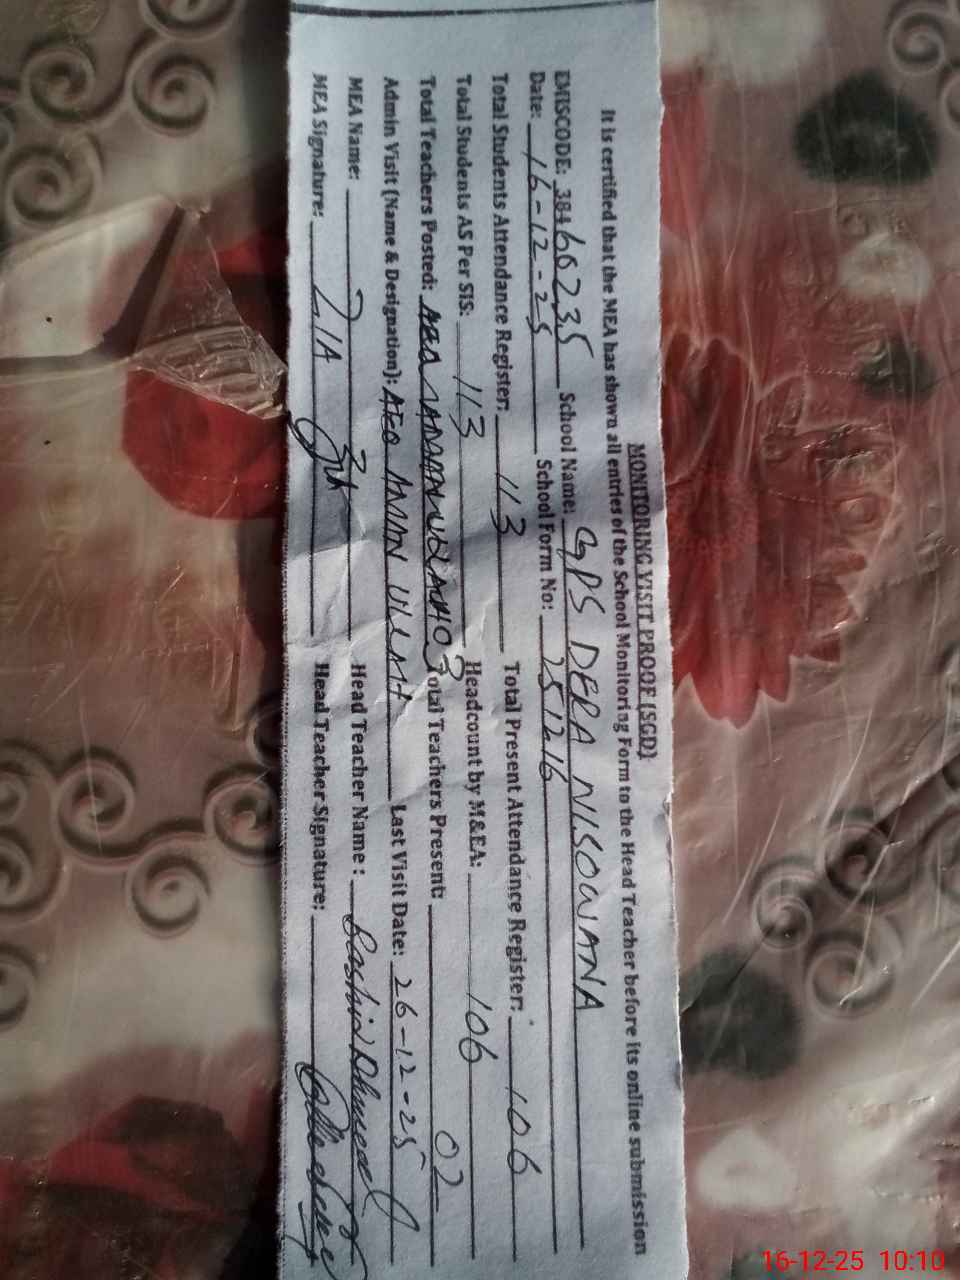 MONITORING VISIT PROOF (SGD)
It is certified that the MEA has shown all entries of the School Monitoring Form to the Head Teacher before its online submission
EMISCODE: 38466235 School Name: GPS DERA NISOWANA
Date: 16-12-25 School Form No: 251216
Total Students Attendance Register: 113 Total Present Attendance Register: 106
Total Students AS Per SIS: 113 Headcount by M&EA: 106
Total Teachers Posted: 03 Total Teachers Present: 02
Admin Visit (Name & Designation): AEO AMAN ULLAH Last Visit Date: 26-12-25
MEA Name: ZIA Head Teacher Name: Rashid Ahmed
MEA Signature: ZIA Head Teacher Signature:
16-12-25 10:10